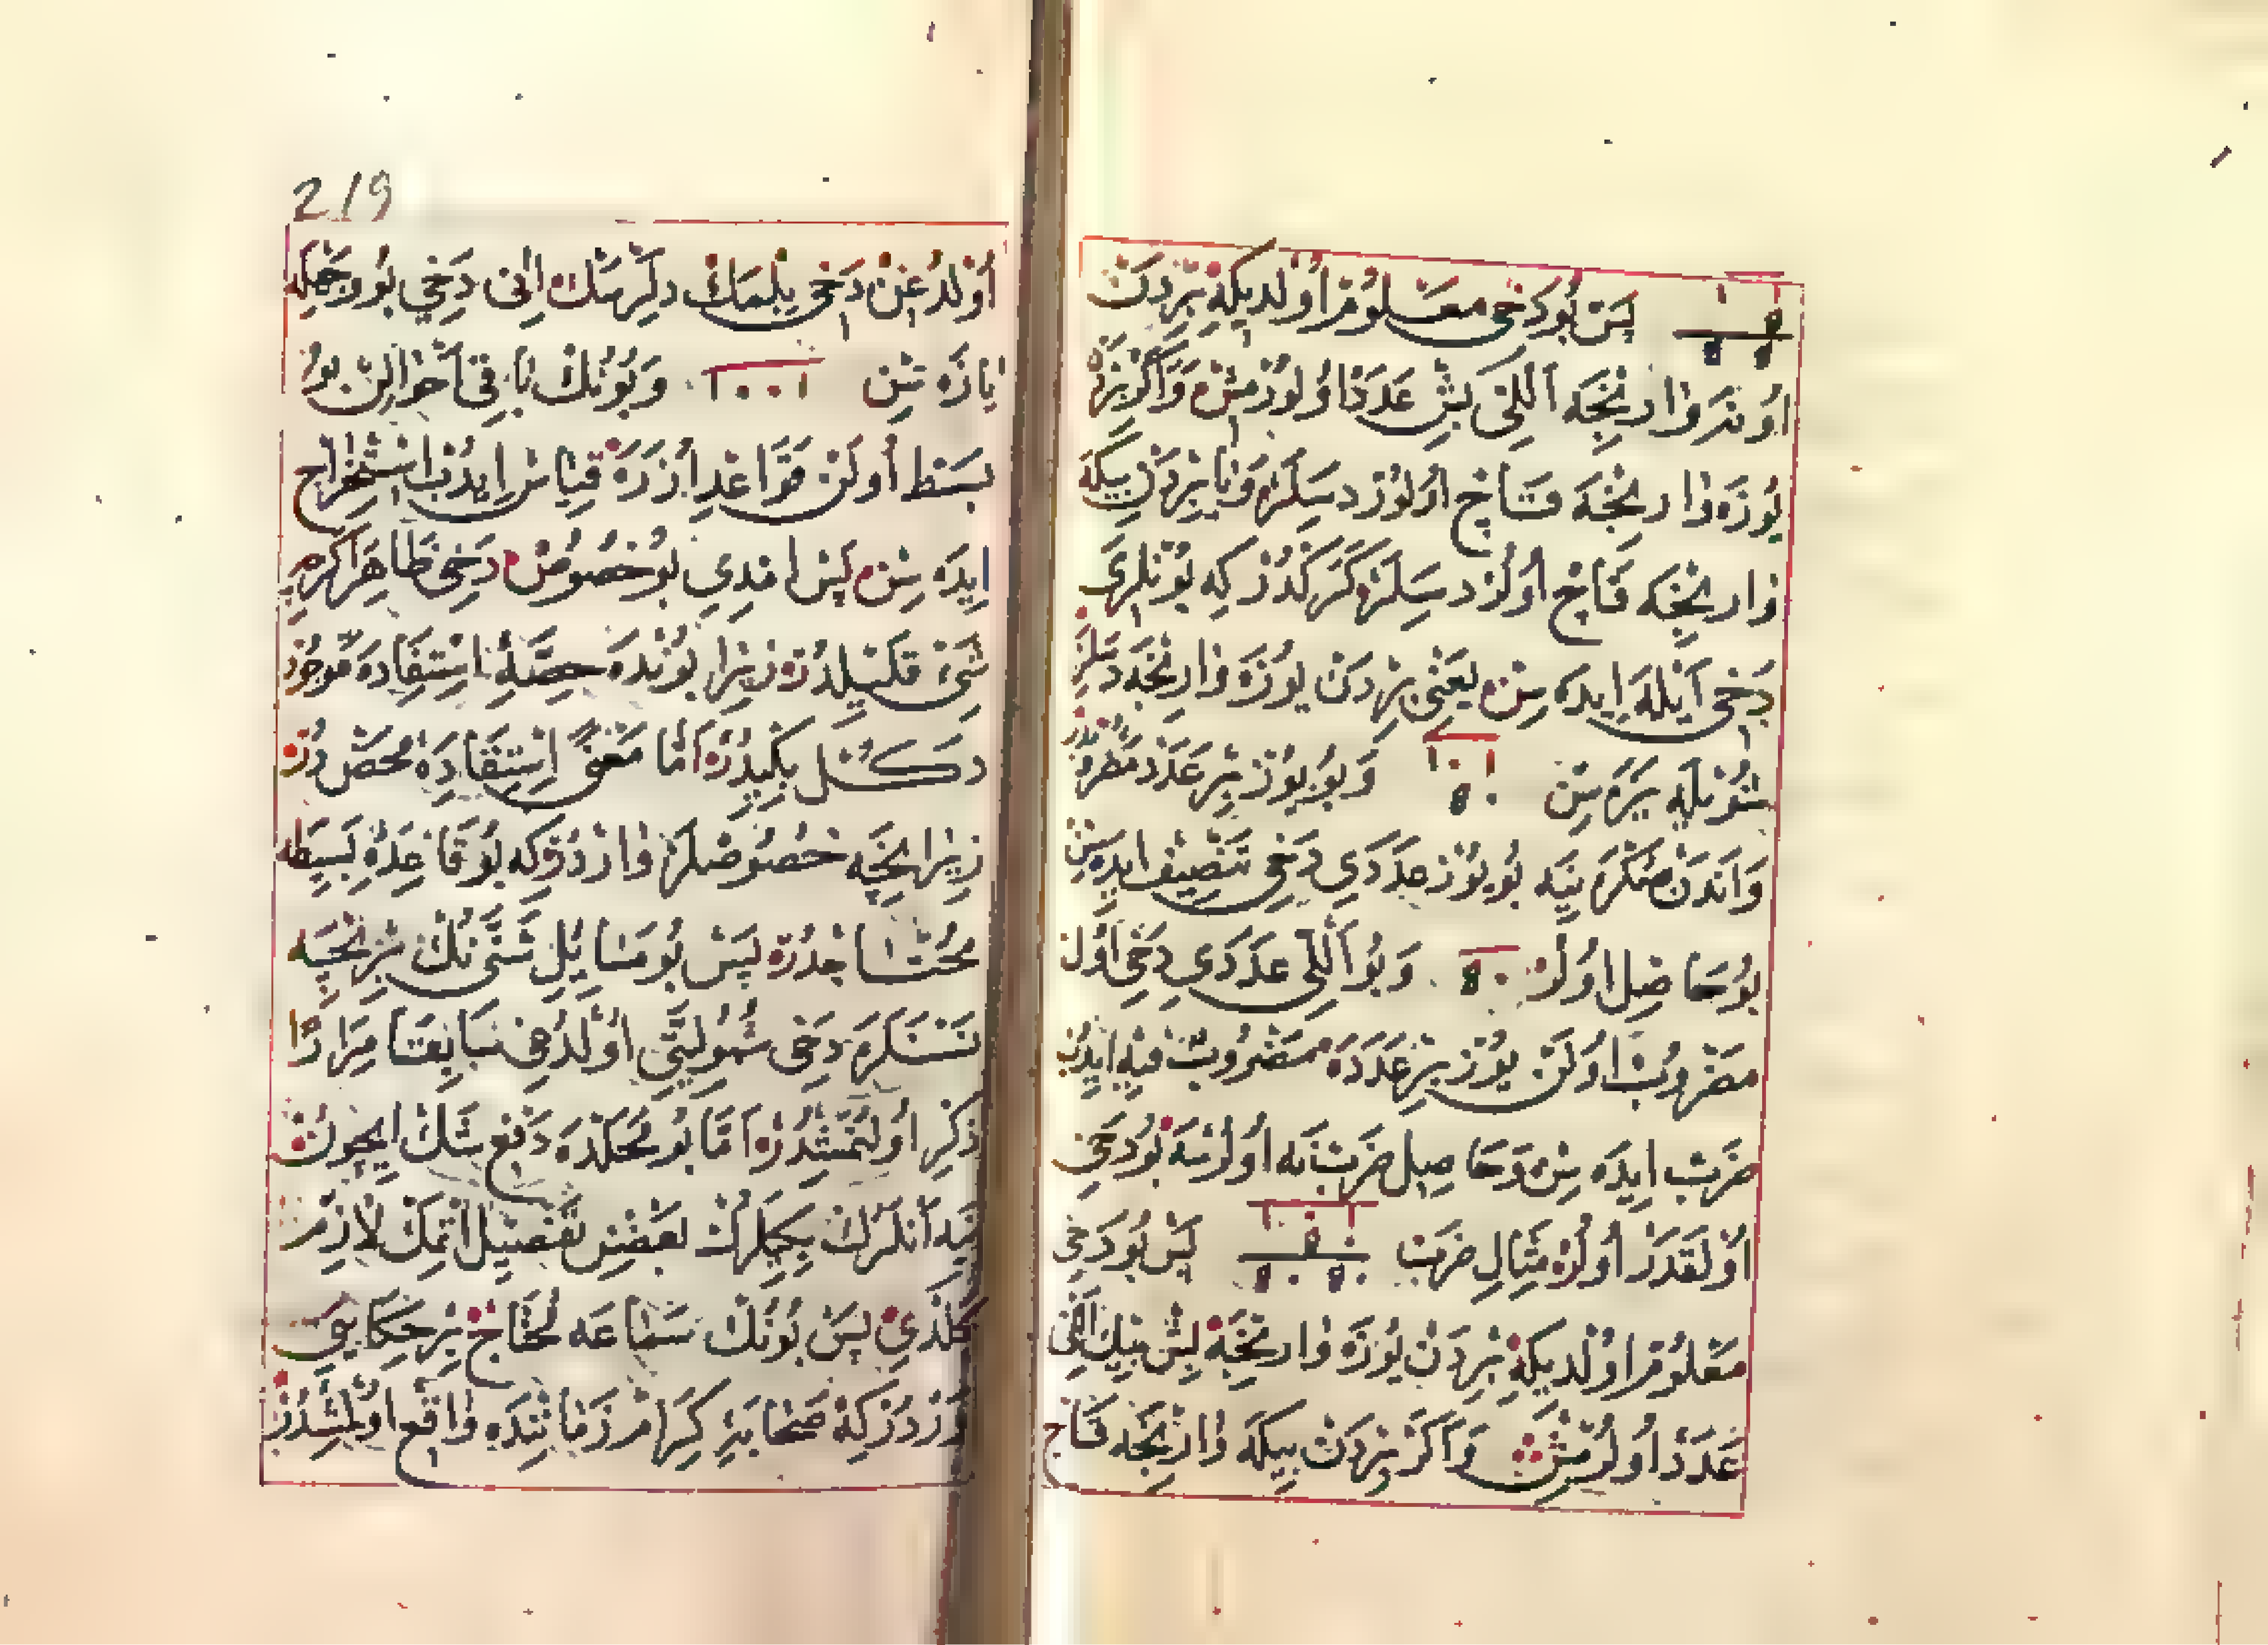 پس بو دخی معلوم اولدیکه بردن
اوندر وارنجه اللی بش عدد اولورمش واکر بردن
یوزه وارنجه قاچ اولور دسه‌لر ویا بردن بیکه
وارنجه قاچ اولور دسه‌لر کرکدر که بونلری
دخی ایله ایده سن یعنی بردن یوزه وارنجه دسه‌لر
شویله یره سن ١٠١ ٥٠ وبو یوز بر عدد مضروبدر
واندن صکره ینه بو یوز عددی دخی تنصیف ایده سن
بو حاصل اولور ٥٠ وبو اللی عددی دخی اول
مضروب اولن یوز بر عدده مضروب فیه ایدوب
ضرب ایده سن وحاصل ضرب نه اولرسه بو دخی
اولقدر اولر مثال ضرب پس بو دخی
معلوم اولدیکه بردن یوزه وارنجه بش بیك اللی
عدد اولرمش واکر بردن بیکه وارنجه قاچ
219
اولدغن دخی بلمك دلرسك انی دخی بو وجهله
یازه سن ١٠٠١ وبونك باقی احوالن بو
بسط اولن قواعد اوزره قیاس ایدب استخراج
ایده سن پس امدی بو خصوص دخی ظاهرا کرچه
شی دکلیدر زیرا بونده حصهٔ استفاده موجود
دکل بکیدر اما معنی استفادهٔ محض در
زیرا نیجه خصوصلر واردر که بو قاعدهٔ بسیطه
محتاجدر پس بو مسایل شتی نك بر نیجه
نسنه‌لره دخی شمولیتی اولدغی سابقا مرارا
ذکر اولنمشدر اما بو محلده دفع شك ایچون
ینه انلرك بعض تفصیل اتمك لازم
کلدی پس بونك سماعه محتاج بر حکایتی
وردر که صحابهٔ کرام زماننده واقع اولمشدر